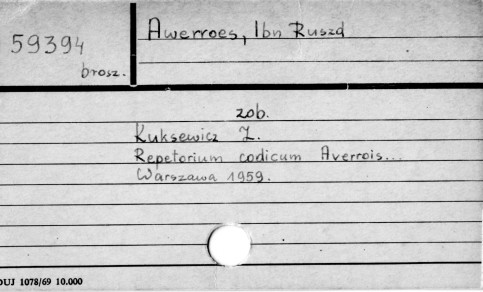 59394
brosz.
Awerroes, Ibn Ruszd
zob.
Kuksewicz Z.
Repetorium codicum Averrois...
Warszawa 1959.
DUJ 1078/69 10.000